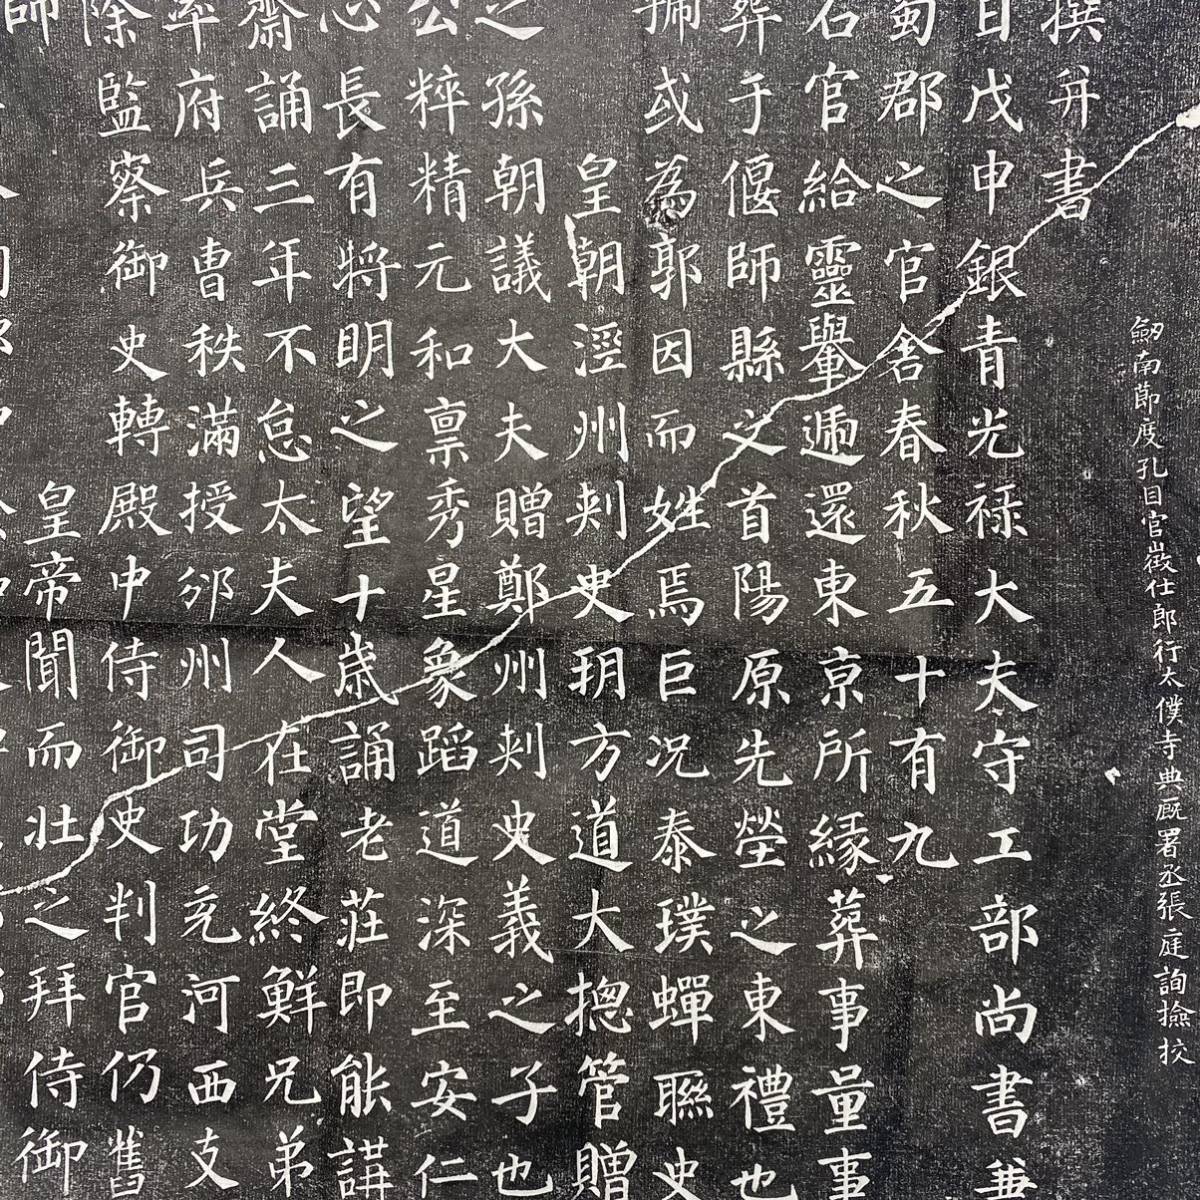 劒南節度孔目官徵仕郎行太僕寺典厩署丞張庭詢撿挍
撰并書
日戊申銀青光禄大夫守工部尚書兼
蜀郡之官舍春秋五十有九
官給靈轝遞還東亰所緣葬事量事
葬于偃師縣之首陽原先塋之東禮也
掃或為郭因而姓焉巨况泰璞蟬聮史
皇朝涇州刾史玥方道大摠管贈
之孫朝議大夫贈鄭州刾史義之子也
公粹精元和禀秀星象蹈道深至安仁
心長有將明之望十歳誦老莊即能講
齋誦三年不怠太夫人在堂終鮮兄弟
率府兵曹秩滿授邠州司功充河西支
除監察御史轉殿中侍御史判官仍舊
師皇帝聞而壯之拜侍御